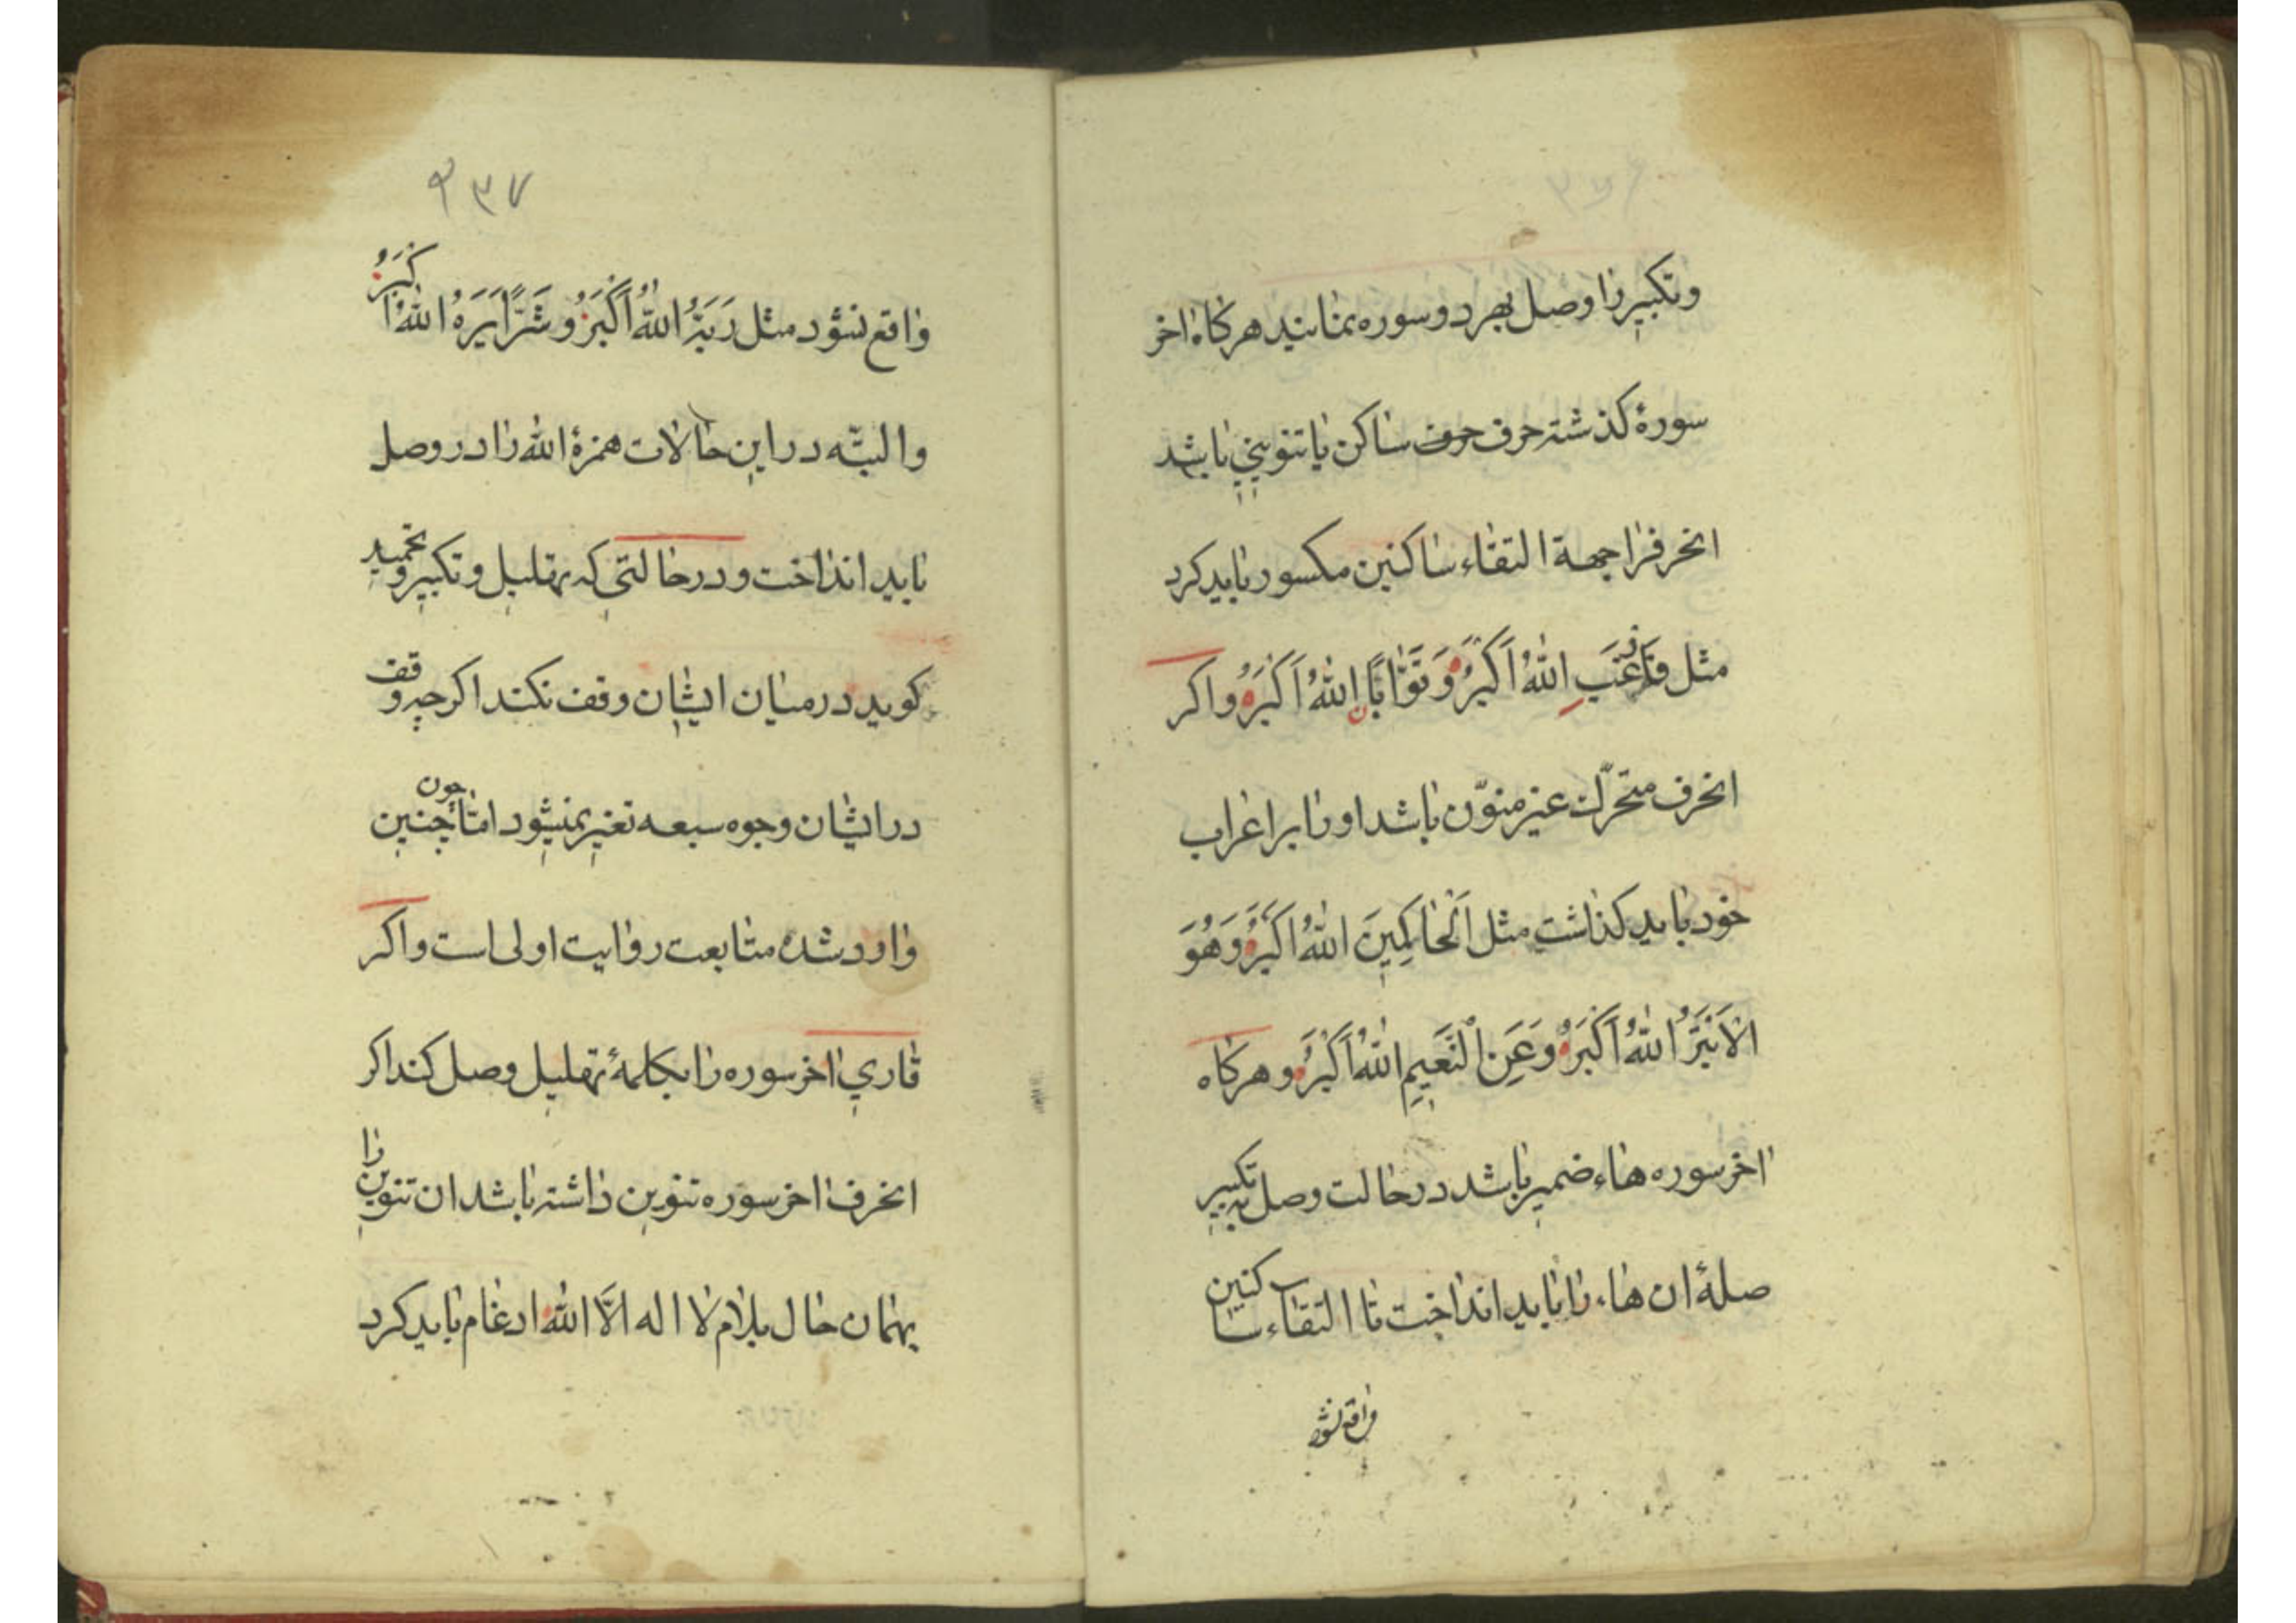 وتکبیر را وصل بهر دو سوره نمایند هرکاه اخر
سورهٔ کذشته حرف حرف ساکن یا تنوینی باشد
انحرف را جهة التقاء ساکنین مکسور باید کرد
مثل فَارْغَبِ اللّٰهُ اَکْبَرُ وَ تَوَّابًا اللّٰهُ اَکْبَرُ واکر
انحرف متحرّک غیر منوّن باشد او را بر اعراب
خود باید کذاشت مثل اَلْحَاکِمِینَ اللّٰهُ اَکْبَرُ وَهُوَ
الاَبْتَرُ اللّٰهُ اَکْبَرُ وَعَنِ النَّعِیمِ اللّٰهُ اَکْبَرُ وهرکاه
اخر سوره هاء ضمیر باشد در حالت وصل به تکبیر
صلهٔ ان هاء را باید انداخت تا التقاء ساکنین
واقع نشود
۲۳۷
واقع نشود مثل رَبَّهُ اللّٰهُ اَکْبَرُ و شَرًّا یَرَهُ اللّٰهُ اکْبَرُ
والبتّه در این حالات همزهٔ اللّٰه را در وصل
باید انداخت و در حالتی که تهلیل و تکبیر و تحمید
کوید در میان ایشان وقف نکند اکرچه وقف
در ایشان وجوه سبعه تغیر نمیشود امّا چون چنین
وارد شده متابعت روایت اولی است واکر
قاری اخر سوره را بکلمهٔ تهلیل وصل کند اکر
انحرف اخر سوره تنوین داشته باشد ان تنوین را
بهمان حال بلام لا اله الّا اللّٰه ادغام باید کرد